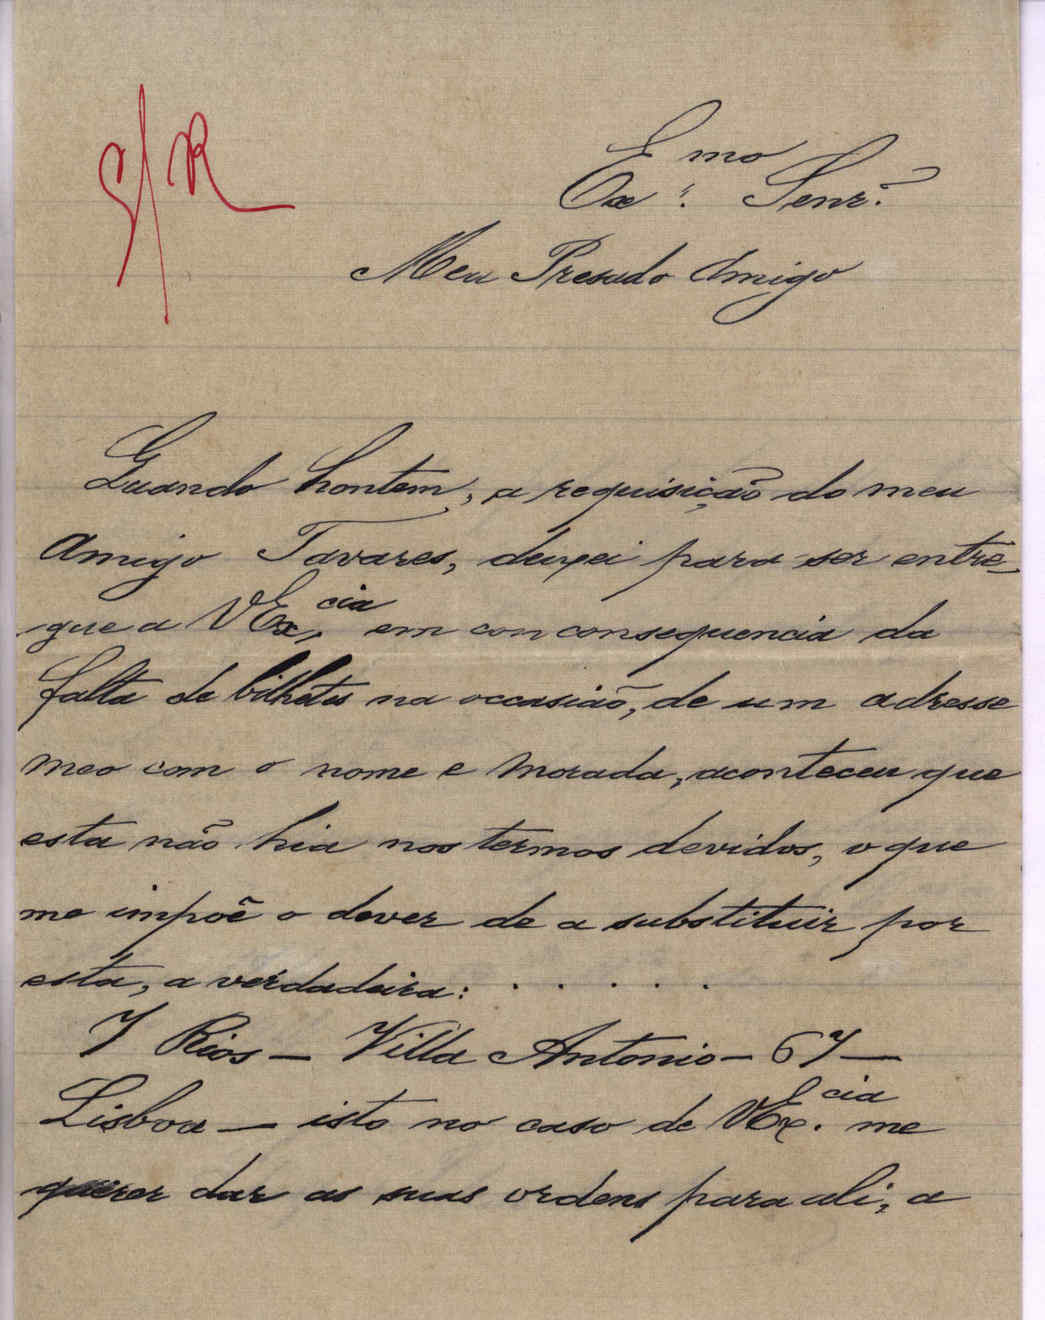 S/R
Exmo. Senr.
Meu Presado Amigo
Quando hontem, a requisição do meu
Amigo Tavares, deixei para ser entre-
gue a VExcia. em con consequencia da
falta de bilhetes na occasião, de um adresse
meo com o nome e morada, aconteceu que
esta não hia nos termos devidos, o que
me impoê o dever de a substituir por
esta, a verdadeira: . . . . . .
7 Rios — Villa Antonio — 67 —
Lisboa — isto no caso de VExcia. me
querer dar as suas ordens para ali, a